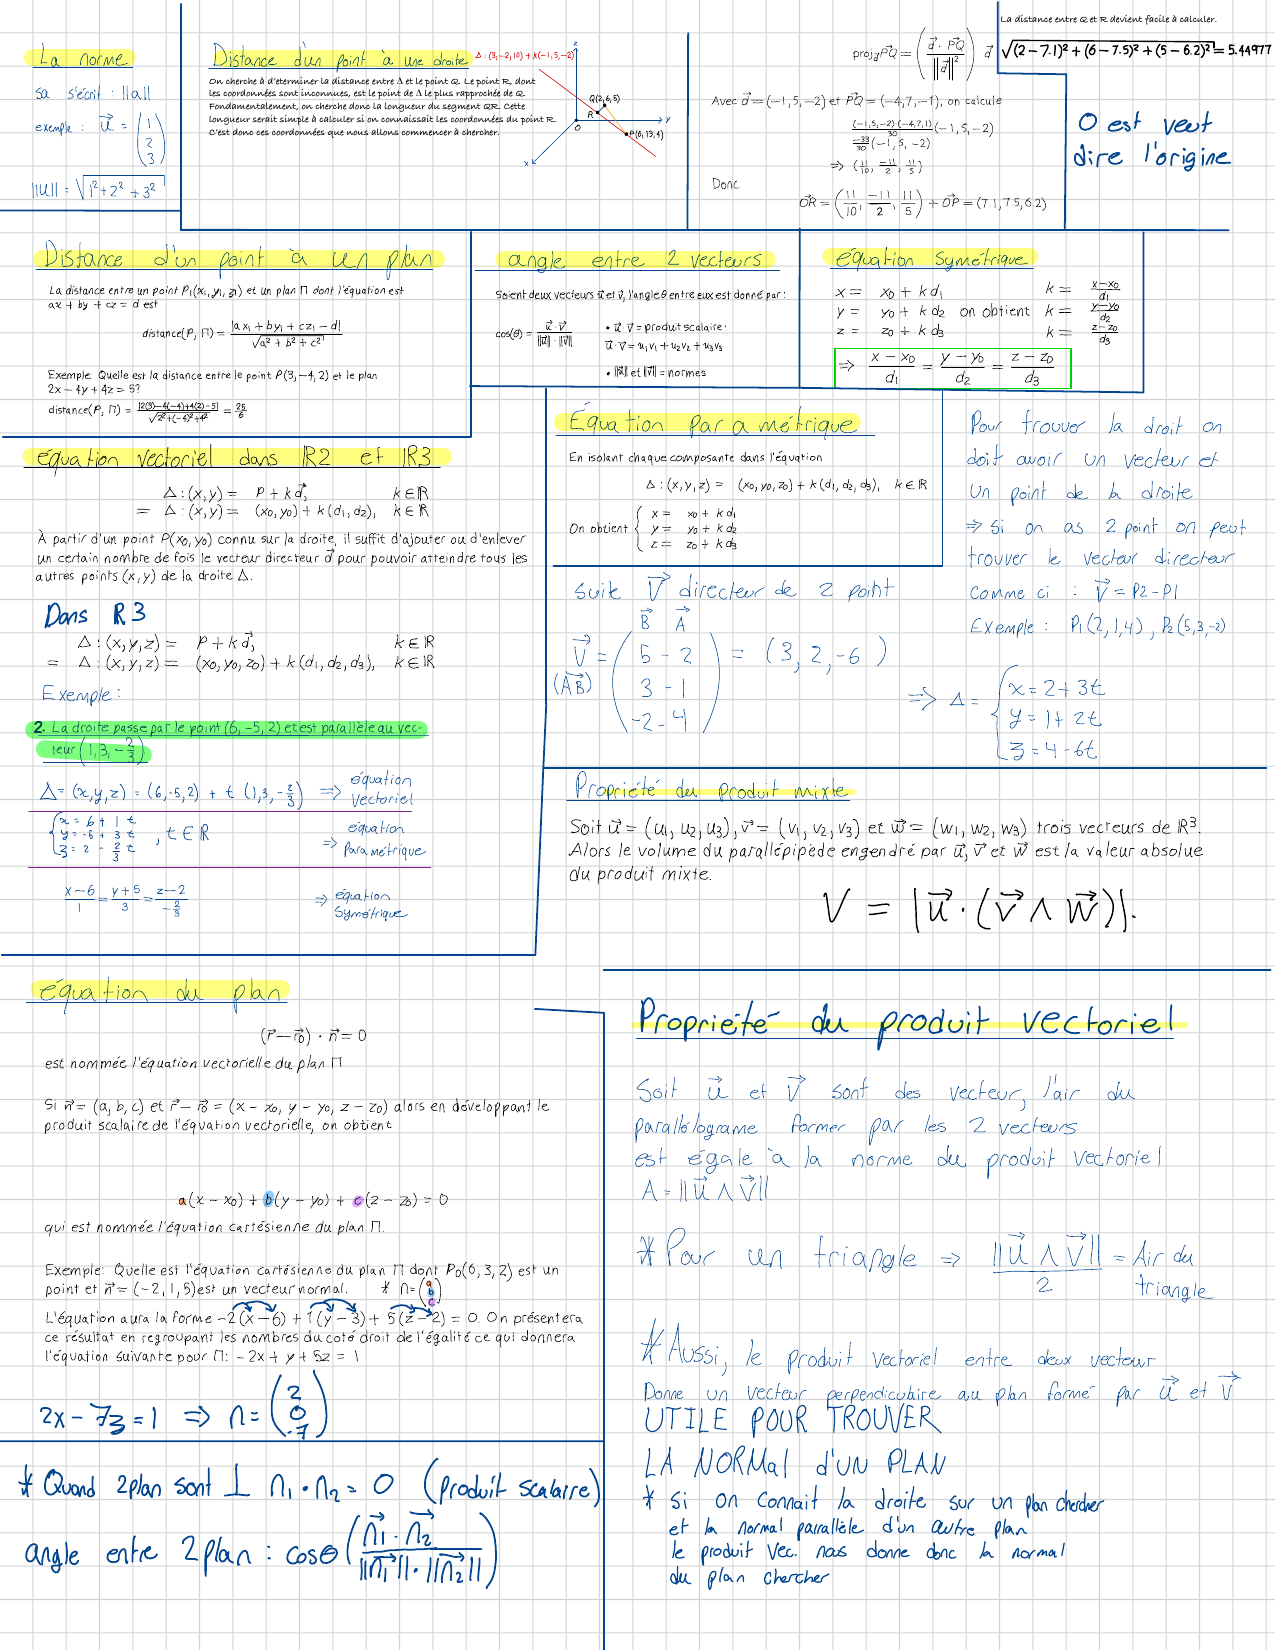 La norme
sa s'écrit : ||a||
exemple : u⃗ = (1 2 3)
||u|| = √1² + 2² + 3²
Distance d'un point à une droite
Δ : (3,-2,10) + k(-1,5,-2)
On cherche à d'eterminer la distance entre Δ et le point Q. Le point R, dont
les coordonnées sont inconnues, est le point de Δ le plus rapprochée de Q.
Fondamentalement, on cherche donc la longueur du segment QR. Cette
longueur serait simple à calculer si on connaissait les coordonnées du point R.
C'est donc ces coordonnées que nous allons commencer à chercher.
z
Q(2,6,5)
R
O
y
P(6,13,4)
x
proj_d PQ⃗ = (d⃗ · PQ⃗ / ||d⃗||²) d⃗
Avec d⃗ = (-1, 5, -2) et PQ⃗ = (-4, 7, -1), on calcule
(-1,5,-2)·(-4,7,1)/30 (-1, 5, -2)
-33/30 (-1, 5, -2)
⇒ (11/10, -11/2, 11/5)
Donc
OR⃗ = (11/10, -11/2, 11/5) + OP⃗ = (7.1, 7.5, 6.2)
La distance entre Q et R devient facile à calculer.
√(2 − 7.1)² + (6 − 7.5)² + (5 − 6.2)² = 5.44977
O est veut
dire l'origine
Distance d'un point à un plan
La distance entre un point P₁(x₁, y₁, z₁) et un plan Π dont l'équation est
ax + by + cz = d est
distance(P, Π) = |ax₁ + by₁ + cz₁ − d| / √a² + b² + c²
Exemple: Quelle est la distance entre le point P(3, −4, 2) et le plan
2x − 4y + 4z = 5?
distance(P, Π) = |2(3)−4(−4)+4(2)−5| / √2²+(−4)²+4² = 25/6
angle entre 2 vecteurs
Soient deux vecteurs u⃗ et v⃗, l'angle θ entre eux est donné par :
cos(θ) = u⃗ · v⃗ / ||u⃗|| · ||v⃗||
• u⃗ · v⃗ = produit scalaire :
u⃗ · v⃗ = u₁v₁ + u₂v₂ + u₃v₃
• ||u⃗|| et ||v⃗|| = normes
équation symétrique
x = x₀ + k d₁ k = x−x₀/d₁
y = y₀ + k d₂ on obtient k = y−y₀/d₂
z = z₀ + k d₃ k = z−z₀/d₃
⇒ x − x₀/d₁ = y − y₀/d₂ = z − z₀/d₃
équation vectoriel dans R2 et R3
Δ : (x, y) = P + k d⃗, k ∈ ℝ
= Δ : (x, y) = (x₀, y₀) + k (d₁, d₂), k ∈ ℝ
À partir d'un point P(x₀, y₀) connu sur la droite, il suffit d'ajouter ou d'enlever
un certain nombre de fois le vecteur directeur d⃗ pour pouvoir atteindre tous les
autres points (x, y) de la droite Δ.
Dans R3
Δ : (x, y, z) = P + k d⃗, k ∈ ℝ
= Δ : (x, y, z) = (x₀, y₀, z₀) + k (d₁, d₂, d₃), k ∈ ℝ
Exemple :
2. La droite passe par le point (6, −5, 2) et est parallèle au vec-
teur (1, 3, −2/3)
Δ = (x,y,z) = (6,-5,2) + t (1,3,-2/3) ⇒ équation Vectoriel
x = 6 + 1 t
y = -5 + 3 t , t ∈ ℝ
z = 2 - 2/3 t
⇒ équation paramétrique
x−6/1 = y+5/3 = z−2/−2/3
⇒ équation Symétrique
Équation paramétrique
En isolant chaque composante dans l'équation
Δ : (x, y, z) = (x₀, y₀, z₀) + k (d₁, d₂, d₃), k ∈ ℝ
x = x₀ + k d₁
On obtient y = y₀ + k d₂
z = z₀ + k d₃
Pour trouver la droit on
doit avoir un vecteur et
un point de la droite
⇒ si on as 2 point on peut
trouver le vecteur directeur
comme ci : v⃗ = P2 - P1
Exemple : P₁(2,1,4) , P₂(5,3,-2)
suite V⃗ directeur de 2 point
B⃗ A⃗
V⃗ = (5 - 2 = (3, 2, -6)
(AB⃗) 3 - 1
-2 - 4)
⇒ Δ = x = 2 + 3t
y = 1 + 2t
z = 4 - 6t
Propriété du produit mixte
Soit u⃗ = (u₁, u₂, u₃), v⃗ = (v₁, v₂, v₃) et w⃗ = (w₁, w₂, w₃) trois vecteurs de ℝ³.
Alors le volume du parallépipède engendré par u⃗, v⃗ et w⃗ est la valeur absolue
du produit mixte.
V = |u⃗ · (v⃗ ∧ w⃗)|.
équation du plan
(r⃗ − r₀⃗) · n⃗ = 0
est nommée l'équation vectorielle du plan Π
Si n⃗ = (a, b, c) et r⃗ − r₀⃗ = (x − x₀, y − y₀, z − z₀) alors en développant le
produit scalaire de l'équation vectorielle, on obtient
a(x − x₀) + b(y − y₀) + c(z − z₀) = 0
qui est nommée l'équation cartésienne du plan Π.
Exemple: Quelle est l'équation cartésienne du plan Π dont P₀(6, 3, 2) est un
point et n⃗ = (−2, 1, 5) est un vecteur normal. * n = (a b c)
L'équation aura la forme −2(x − 6) + 1(y − 3) + 5(z − 2) = 0. On présentera
ce résultat en regroupant les nombres du coté droit de l'égalité ce qui donnera
l'équation suivante pour Π: −2x + y + 5z = 1
2x - 7z = 1 ⇒ n = (2 0 -7)
* Quand 2 plan sont ⊥ n₁ · n₂ = 0 (produit scalaire)
angle entre 2 plan : cosθ (n₁⃗ · n₂⃗ / ||n₁⃗|| · ||n₂⃗||)
Propriété du produit vectoriel
Soit u⃗ et v⃗ sont des vecteur, l'air du
parallélograme former par les 2 vecteurs
est égale à la norme du produit vectoriel
A = ||u⃗ ∧ v⃗||
* Pour un triangle ⇒ ||u⃗ ∧ v⃗|| / 2 = Air du triangle
* Aussi, le produit vectoriel entre deux vecteur
Donne un vecteur perpendiculaire au plan formé par u⃗ et v⃗
UTILE POUR TROUVER
LA NORMal d'UN PLAN
* si on connait la droite sur un plan chercher
et la normal parrallèle d'un autre plan
le produit vec. nous donne donc la normal
du plan chercher